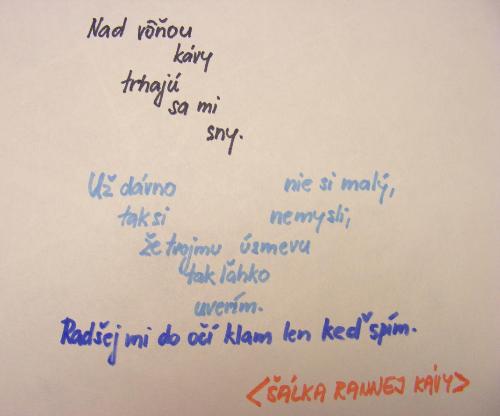 Nad vôňou
kávy
trhajú
sa mi
sny.
Už dávno nie si malý,
tak si nemysli,
že tvojmu úsmevu
tak ľahko
uverím.
Radšej mi do očí klam len keď spím.
<ŠÁLKA RANNEJ KÁVY>